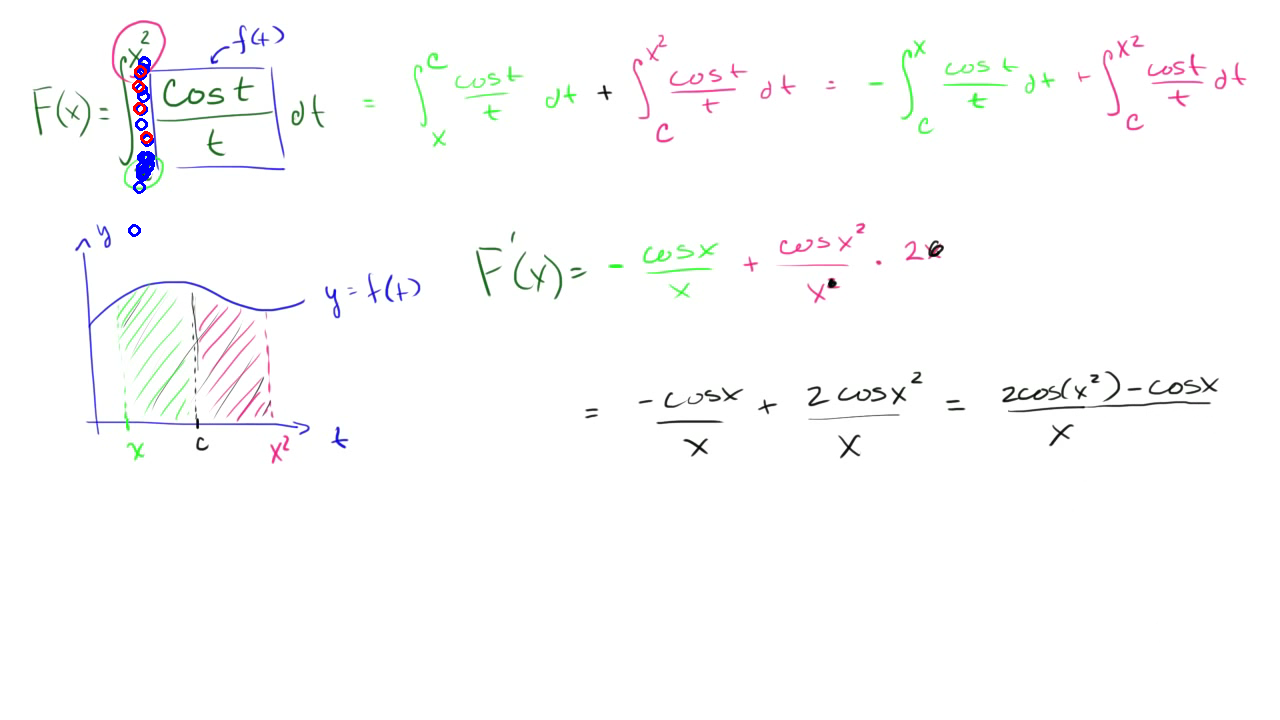 F(x) = ∫ₓ^(x²) cos t / t dt = ∫ₓ^c cos t / t dt + ∫_c^(x²) cos t / t dt = - ∫_c^x cos t / t dt + ∫_c^(x²) cos t / t dt
f(t)
F'(x) = - cos x / x + cos x² / x · 2
y
y = f(t)
x c x² t
= -cos x / x + 2 cos x² / x = 2cos(x²) - cos x / x